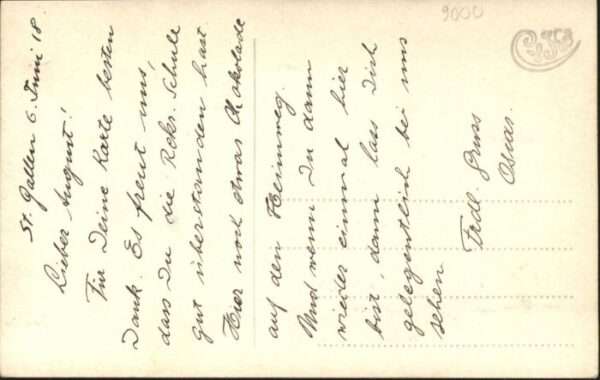 St. Gallen 6. Juni 18.
Lieber August!
Für Deine Karte besten
Dank. Es freut uns,
dass Du die Rekr. Schule
gut überstanden hast.
Hier noch etwas Chokolade
auf den Heimweg.
Und wenn Du dann
wieder einmal hier
bist, dann lass Dich
gelegentlich bei uns
sehen.
Frdl. Gruss
9000